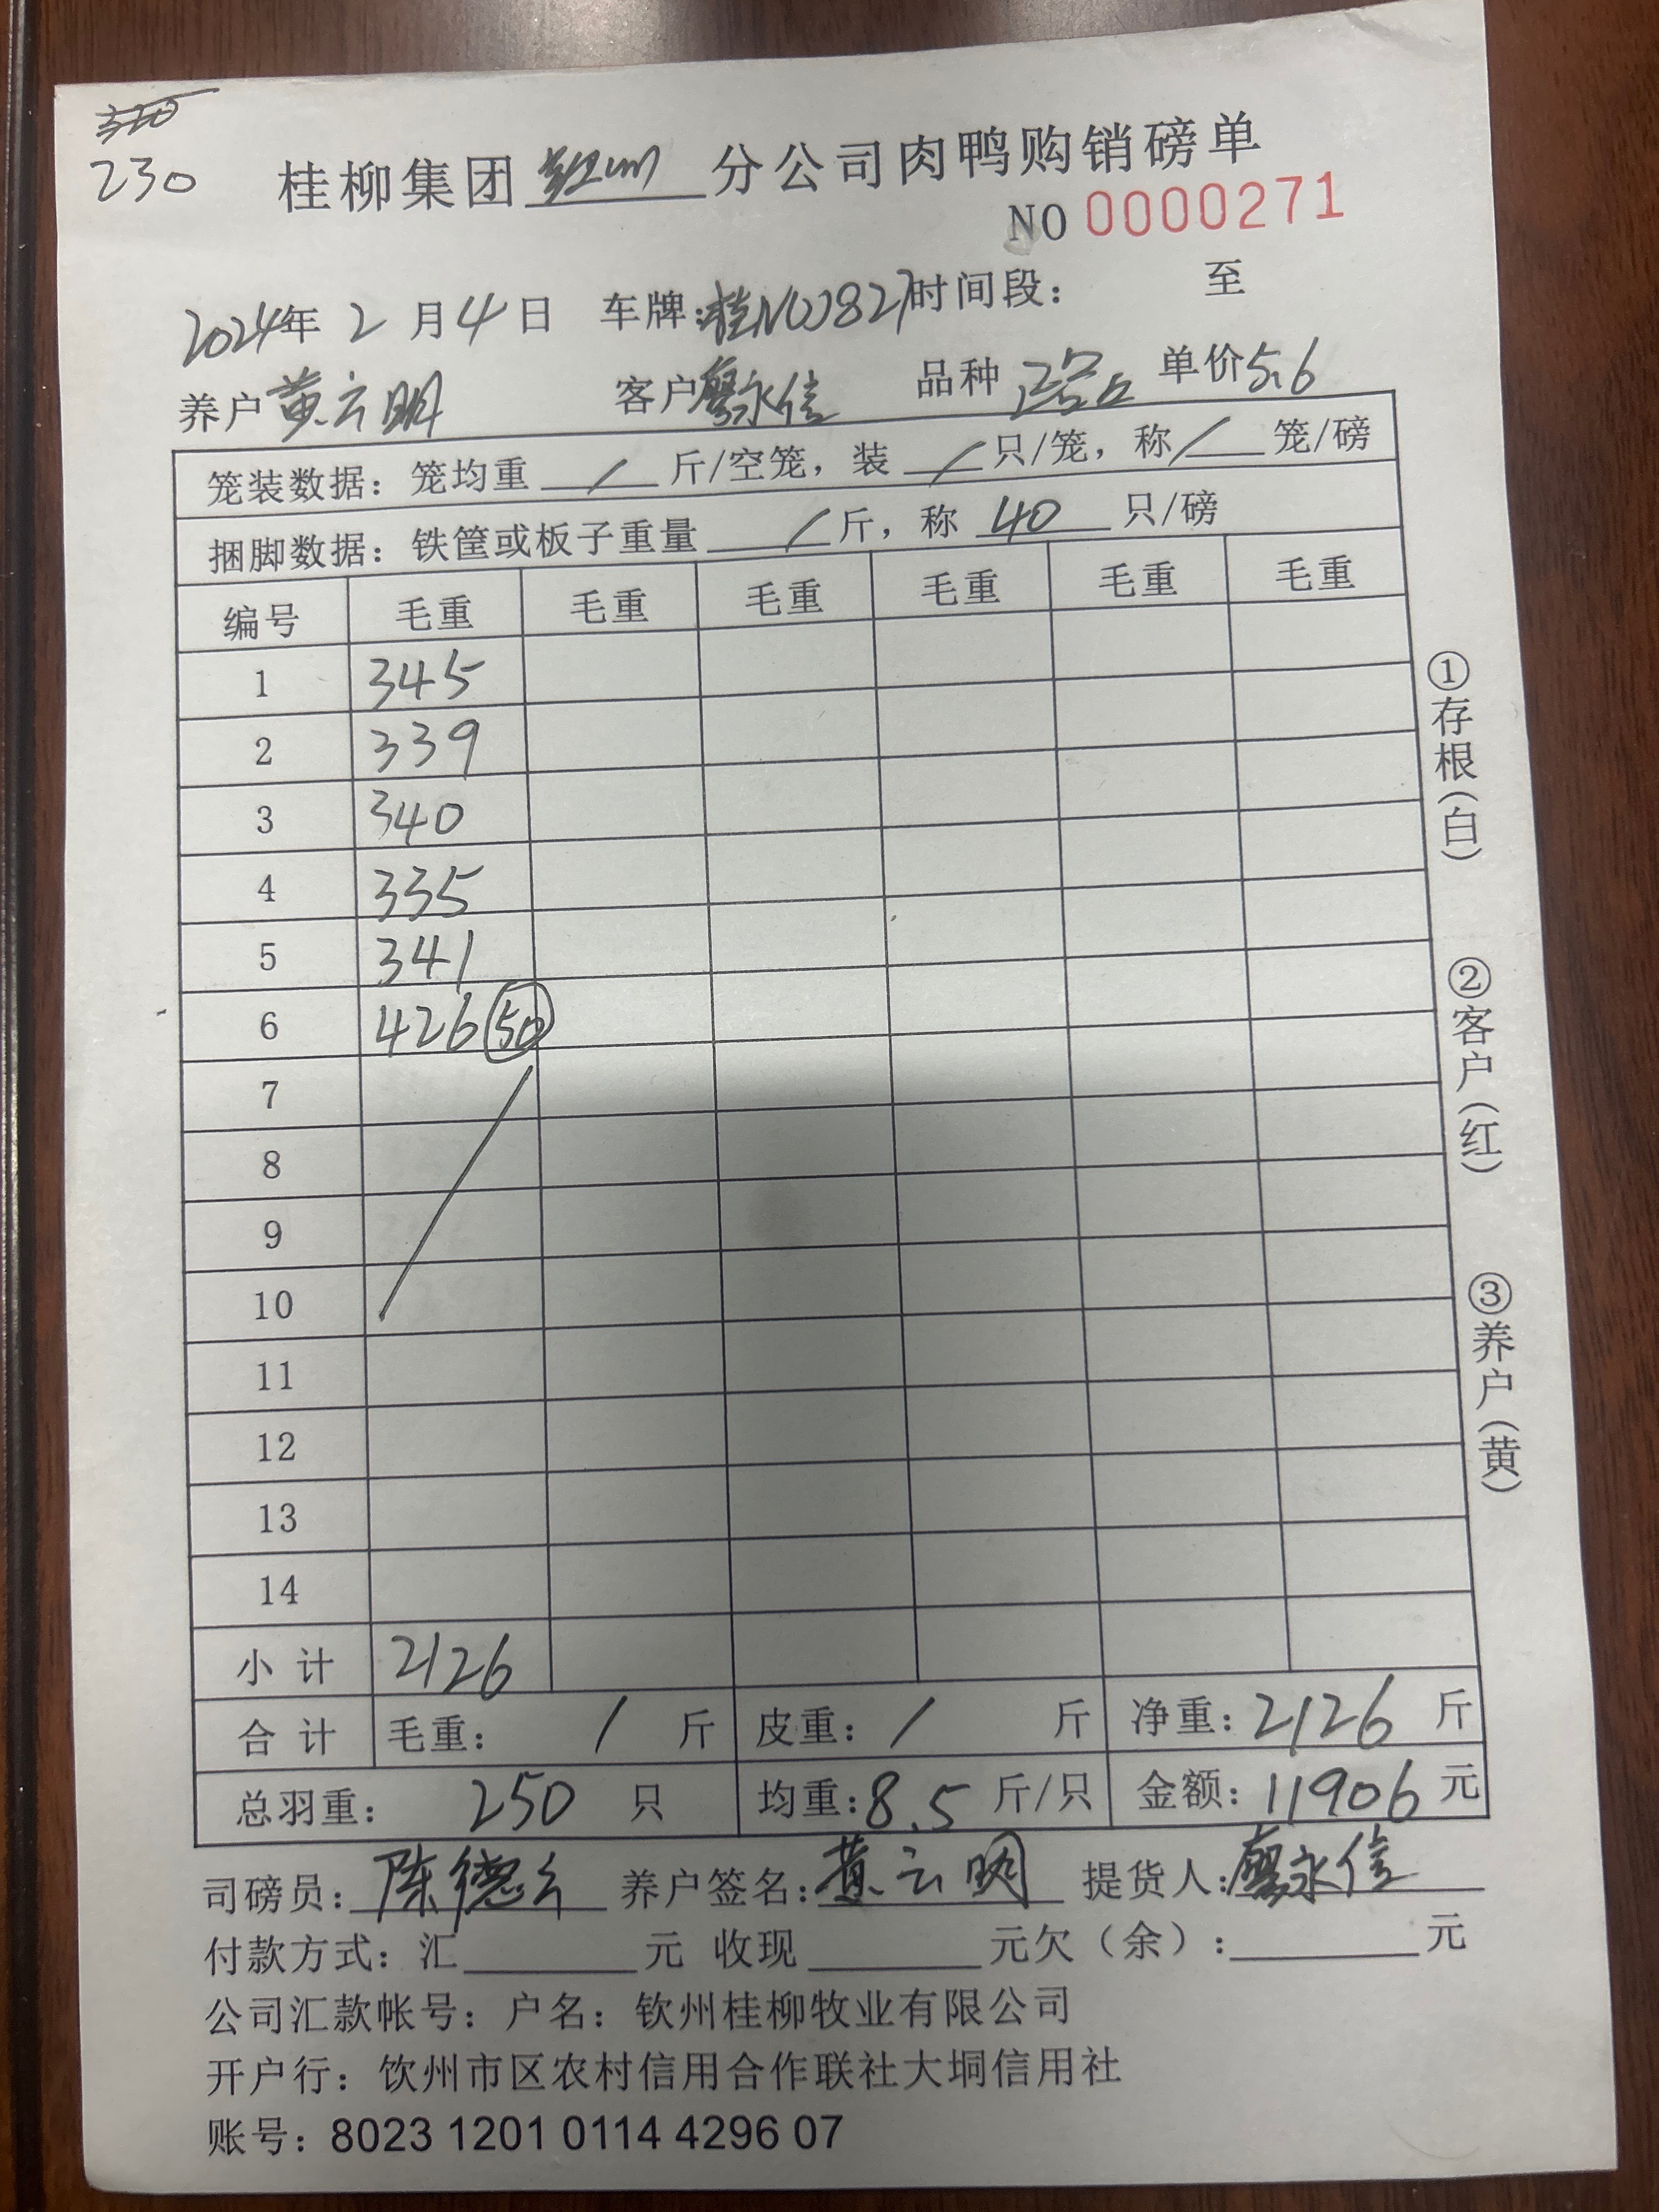 320
230
桂柳集团 钦州 分公司肉鸭购销磅单
NO 0000271
2024年 2 月 4 日 车牌:桂N0J827 时间段: 至
养户 黄云明 客户 廖永信 品种 单价5.6
笼装数据: 笼均重 / 斤/空笼, 装 / 只/笼, 称 / 笼/磅
捆脚数据: 铁筐或板子重量 / 斤, 称 40 只/磅
编号 毛重 毛重 毛重 毛重 毛重 毛重
1 345
2 339
3 340
4 335
5 341
6 426 50
7
8
9
10
11
12
13
14
小计 2126
合计 毛重: / 斤 皮重: / 斤 净重: 2126 斤
总羽重: 250 只 均重: 8.5 斤/只 金额: 11906 元
司磅员: 陈德 养户签名: 黄云明 提货人: 廖永信
付款方式: 汇 元 收现 元欠(余): 元
公司汇款帐号: 户名: 钦州桂柳牧业有限公司
开户行: 钦州市区农村信用合作联社大垌信用社
账号: 8023 1201 0114 4296 07
①存根(白)
②客户(红)
③养户(黄)